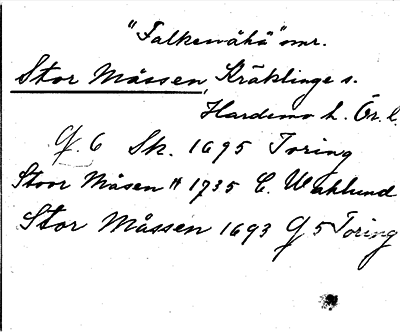 "Falkenåhå" omr.
Stor Måssen, Kräklinge s.
Hardemo h. Ör. l.
G. 6 Sk. 1695 Toring
Stoor Måsen " 1735 C. Weklund
Stor Måssen 1693 G 5 Toring